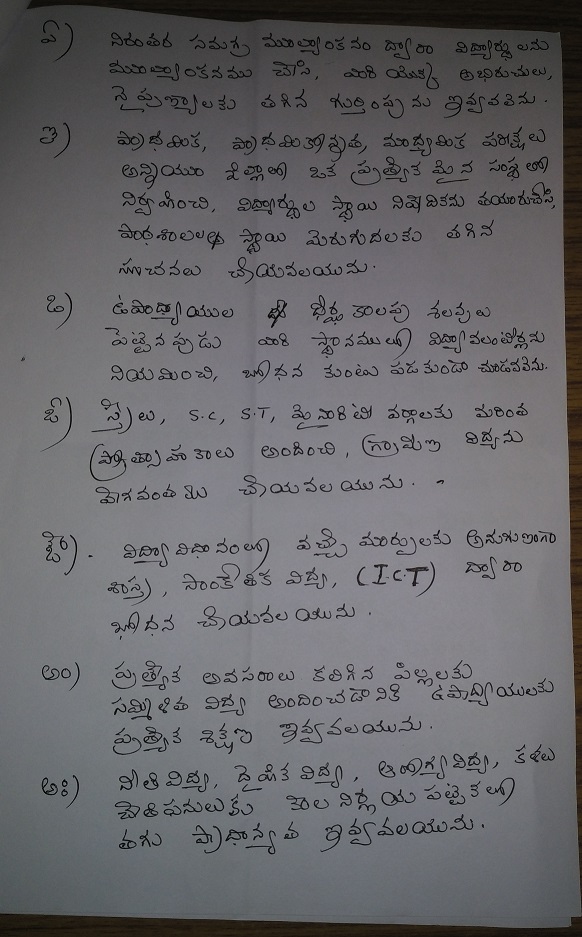 ఏ) నిరంతర సమగ్ర మూల్యాంకనం ద్వారా విద్యార్థులను
మూల్యాంకనము చేసి, వారి యొక్క అభిరుచులు,
నైపుణ్యాలకు తగిన గుర్తింపును ఇవ్వవలెను.
ఐ) ప్రాధమిక, ప్రాధమికోన్నత, మాధ్యమిక పరీక్షలు
అన్నియు జిల్లాలో ఒక ప్రత్యేకమైన సంస్థలో
నిర్వహించి, విద్యార్థుల స్థాయి నివేదికను తయారుచేసి,
పాఠశాలల స్థాయి మెరుగుదలకు తగిన
సూచనలు చేయవలయును.
ఒ) ఉపాధ్యాయుల ధీర్ఘ కాలపు శెలవులు
పెట్టినపుడు వారి స్థానములో విద్యావలంటీర్లను
నియమించి, బోధన కుంటుపడకుండా చూడవలెను.
ఓ) స్త్రీలు, S.C, S.T, మైనారిటీ వర్గాలకు మరింత
ప్రోత్సాహకాలు అందించి, గ్రామీణ విద్యను
వేగవంతము చేయవలయును.
ఔ). విద్యావిధానంలో వచ్చే మార్పులకు అనుగుణంగా
శాస్త్ర, సాంకేతిక విద్య, (I.C.T) ద్వారా
బోధన చేయవలయును.
అం) ప్రత్యేక అవసరాలు కలిగిన పిల్లలకు
సమ్మిళిత విద్య అందించడానికి ఉపాధ్యాయులకు
ప్రత్యేక శిక్షణ ఇవ్వవలయును.
అః) నీతి విద్య, దైహిక విద్య, ఆరోగ్యవిద్య, కళలు
చేతిపనులకు కాల నిర్ణయ పట్టికలో
తగు ప్రాధాన్యత ఇవ్వవలయును.